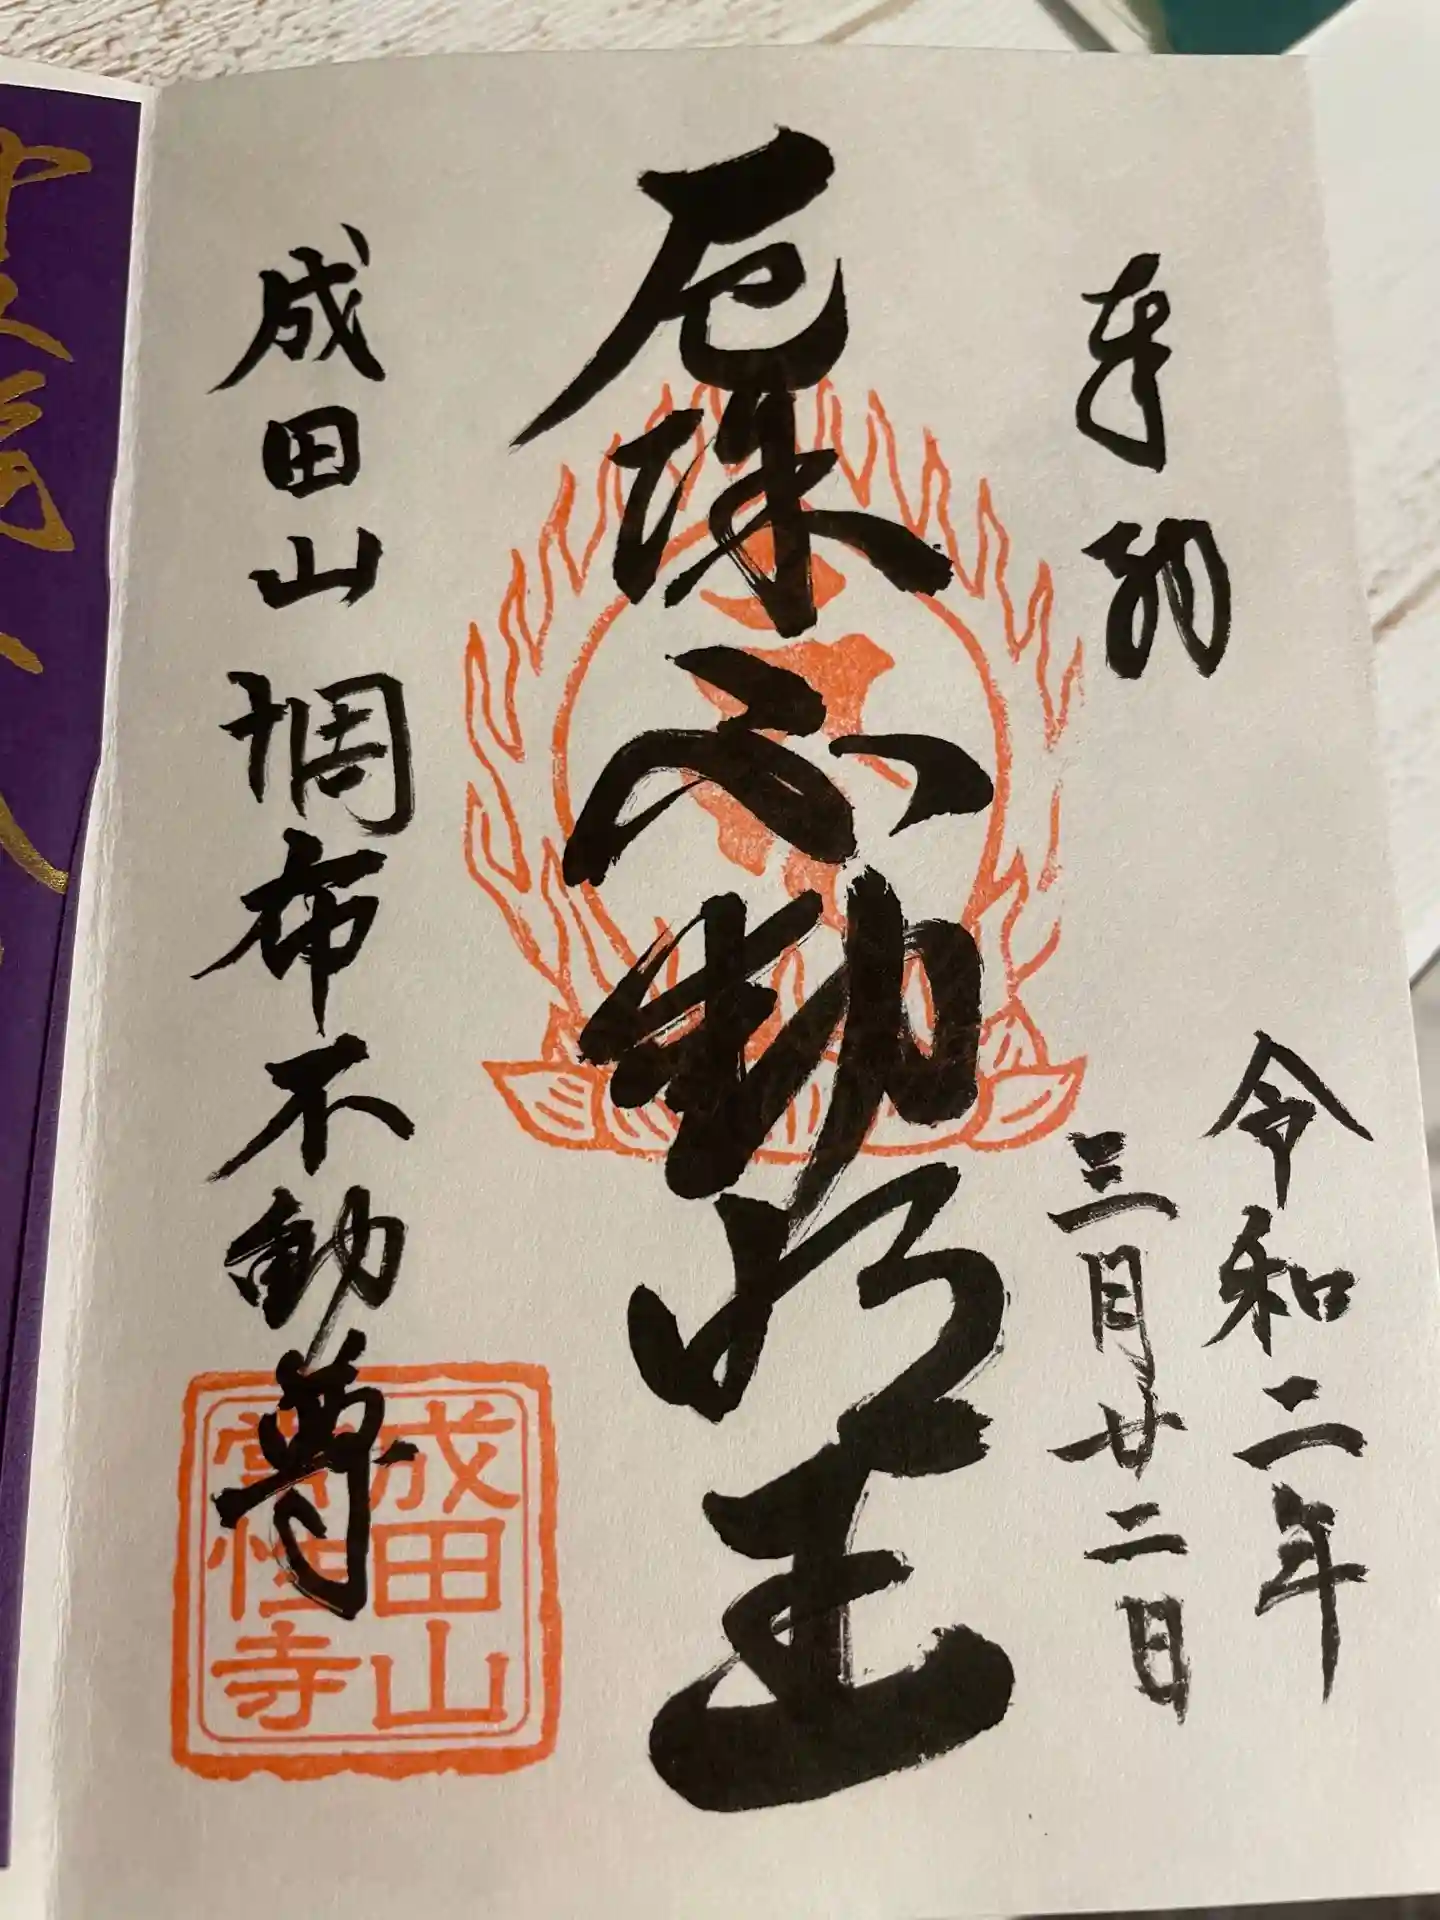 奉納
令和二年
三月廿二日
厄除不動明王
成田山 調布不動尊
成田山
常性寺